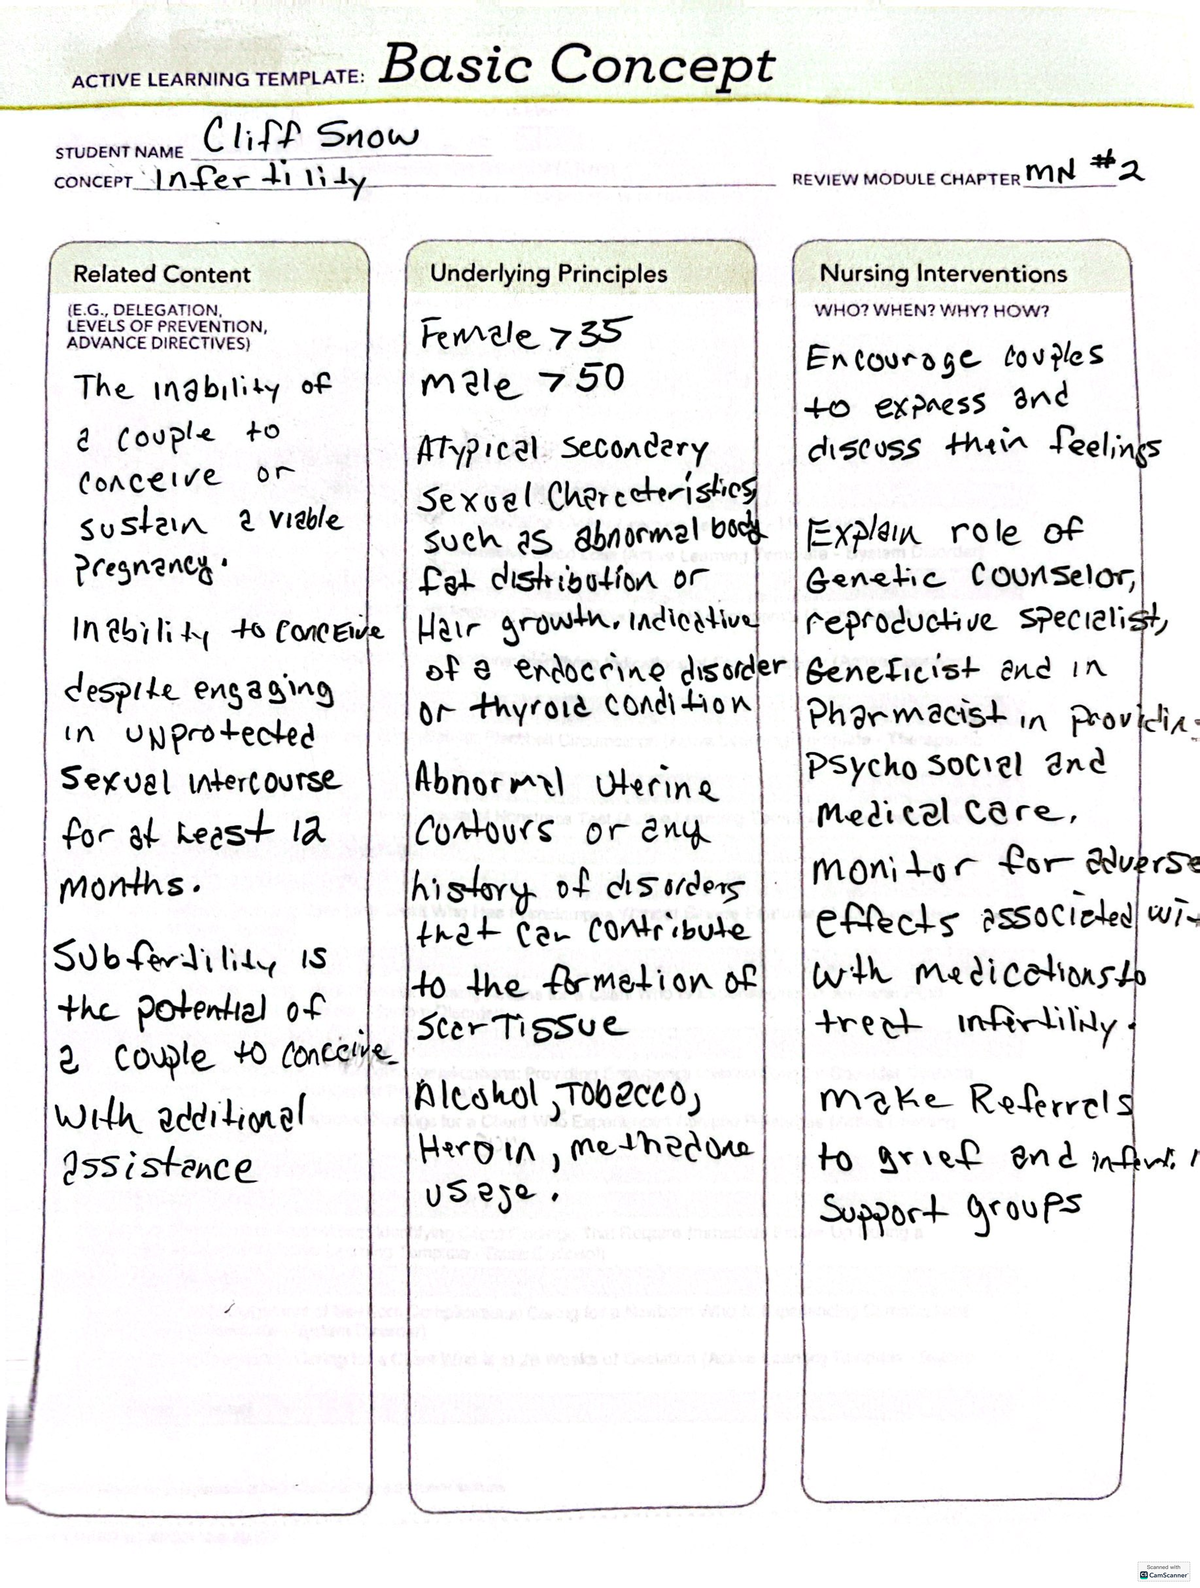 ACTIVE LEARNING TEMPLATE: Basic Concept
STUDENT NAME Cliff Snow
CONCEPT Infertility
REVIEW MODULE CHAPTER MN #2
Related Content
(E.G., DELEGATION,
LEVELS OF PREVENTION,
ADVANCE DIRECTIVES)
The inability of
a couple to
conceive or
sustain a viable
Pregnancy.
Inability to conceive
despite engaging
in unprotected
sexual intercourse
for at least 12
months.
Subfertility is
the potential of
a couple to conceive
with additional
assistance
Underlying Principles
Female >35
male >50
Atypical secondary
sexual Characteristics,
such as abnormal body
fat distribution or
Hair growth, indicative
of a endocrine disorder
or thyroid condition
Abnormal uterine
contours or any
history of disorders
that can contribute
to the formation of
scar Tissue
Alcohol, Tobacco,
Heroin, methadone
usage.
Nursing Interventions
WHO? WHEN? WHY? HOW?
Encourage couples
to express and
discuss their feelings
Explain role of
Genetic counselor,
reproductive specialist,
Geneticist and in
Pharmacist in providin
Psychosocial and
medical care.
monitor for adverse
effects associated wit
with medications to
treat infertility.
make Referrals
to grief and
Support groups
Scanned with
CamScanner